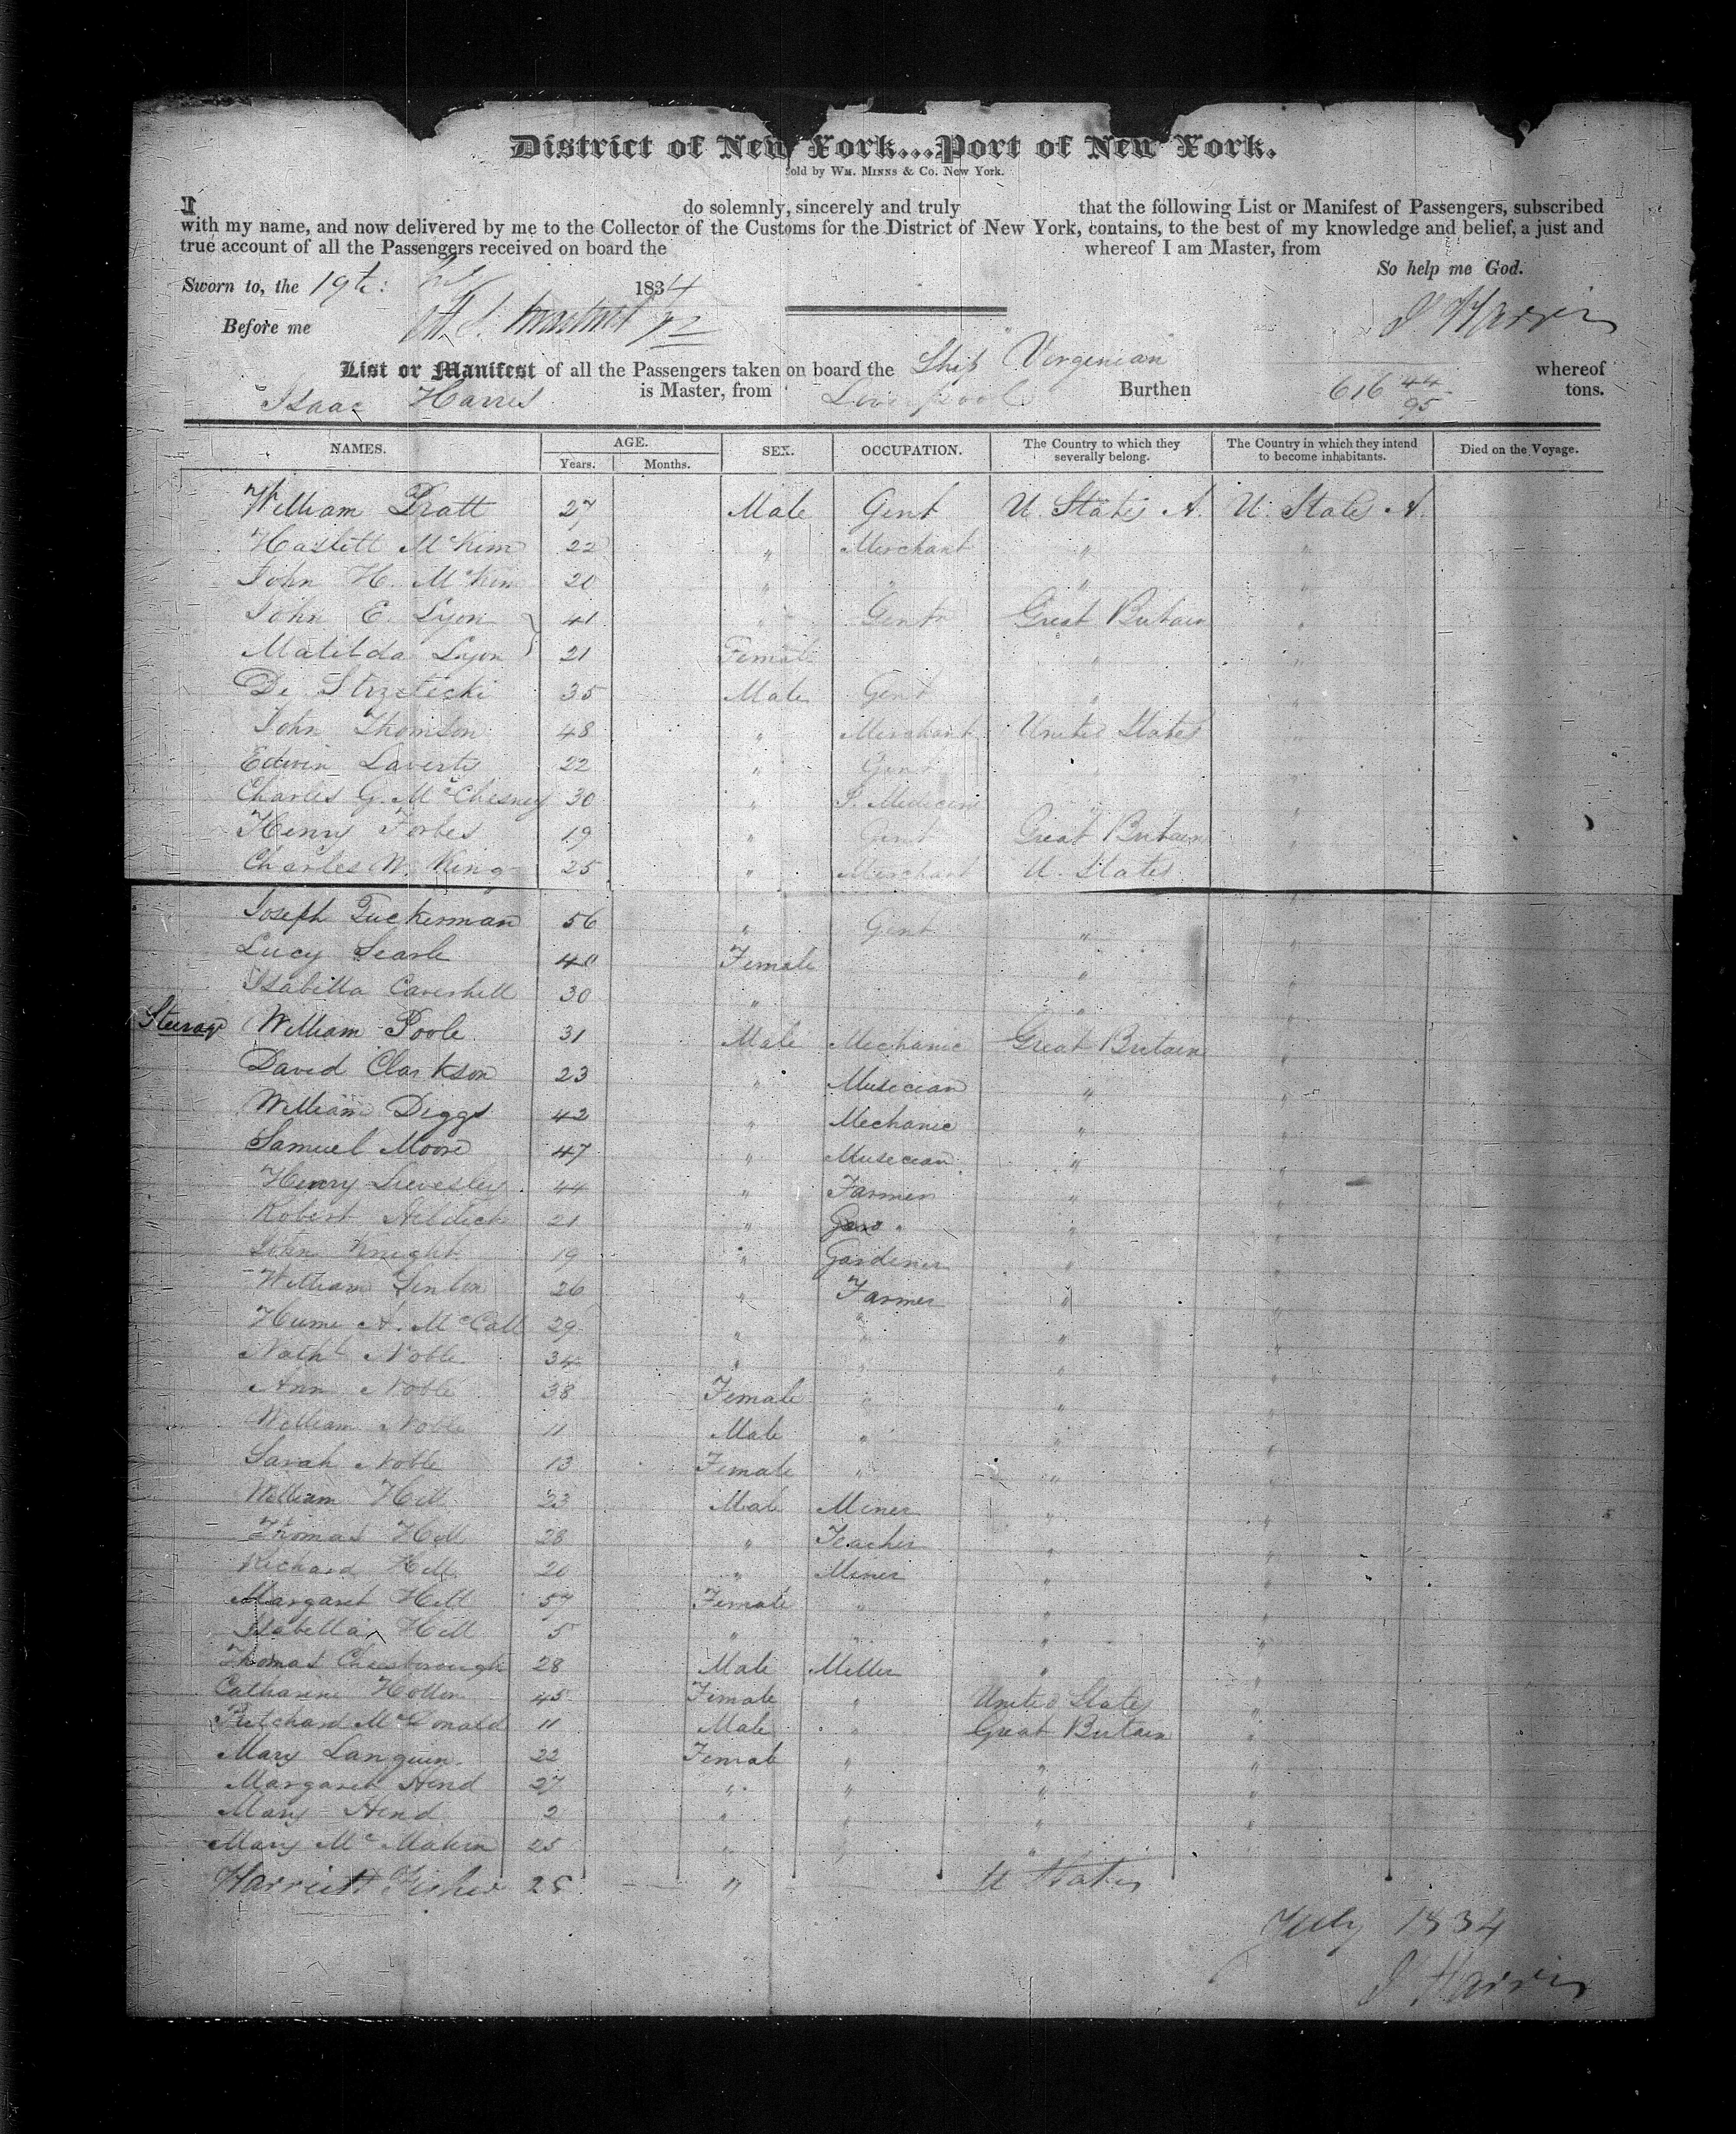 District of New York...Port of New York.
Sold by WM. MINNS & Co. New York.
I do solemnly, sincerely and truly that the following List or Manifest of Passengers, subscribed
with my name, and now delivered by me to the Collector of the Customs for the District of New York, contains, to the best of my knowledge and belief, a just and
true account of all the Passengers received on board the whereof I am Master, from
So help me God.
Sworn to, the 19th: 1834
Before me
I Harris
List or Manifest of all the Passengers taken on board the Ship Virginian whereof
Isaac Harris is Master, from Liverpool Burthen 616 44/95 tons.
NAMES. AGE. SEX. OCCUPATION. The Country to which they severally belong. The Country in which they intend to become inhabitants. Died on the Voyage.
Years. Months.
William Pratt 27 Male Gent U. States A. U. States A.
Haslett McKim 22 " Merchant " "
John H. McKim 20 " " " "
John E. Lyon 41 " Gentn Great Britain "
Matilda Lyon 21 Female " "
De Strzelecki 35 Male Gent " "
John Thomson 48 " Merchant United States "
Edwin 22 " Gent "
Charles G. McChesney 30 " " "
Henry Forbes 19 " Gent Great Britain "
Charles W. King 25 " Merchant U. States
Joseph Tuckerman 56 " Gent " "
Lucy Searle 40 Female " "
Isabella Caverhill 30 " " "
Steerage William Poole 31 Male Mechanic Great Britain "
David Clarkson 23 " Musician " "
William Diggs 42 " Mechanic " "
Samuel Moore 47 " Musician " "
Henry Livesley 44 " Farmer " "
Robert 21 " " "
John Knight 19 " Gardener " "
William 26 " Farmer " "
Hume A. McCall 29 " " " "
Nathl Noble 34 " " " "
Ann Noble 38 Female " " "
William Noble 11 Male " " "
Sarah Noble 13 Female " " "
William Hill 23 Male Miner " "
Thomas Hill 28 " Teacher " "
Richard Hill 20 " Miner " "
Margaret Hill 57 Female " " "
Isabella Hill 5 " " " "
Thomas Cheesborough 28 Male Miller " "
Catharine 45 Female " United States "
Pritchard McDonald 11 Male " Great Britain "
Mary 22 Female " " "
Margaret Hend 27 " " " "
Mary Hend 2 " " " "
Mary McMahon 25 " " " "
Harriett Fisher 25 " U States
July 1834
I Harris